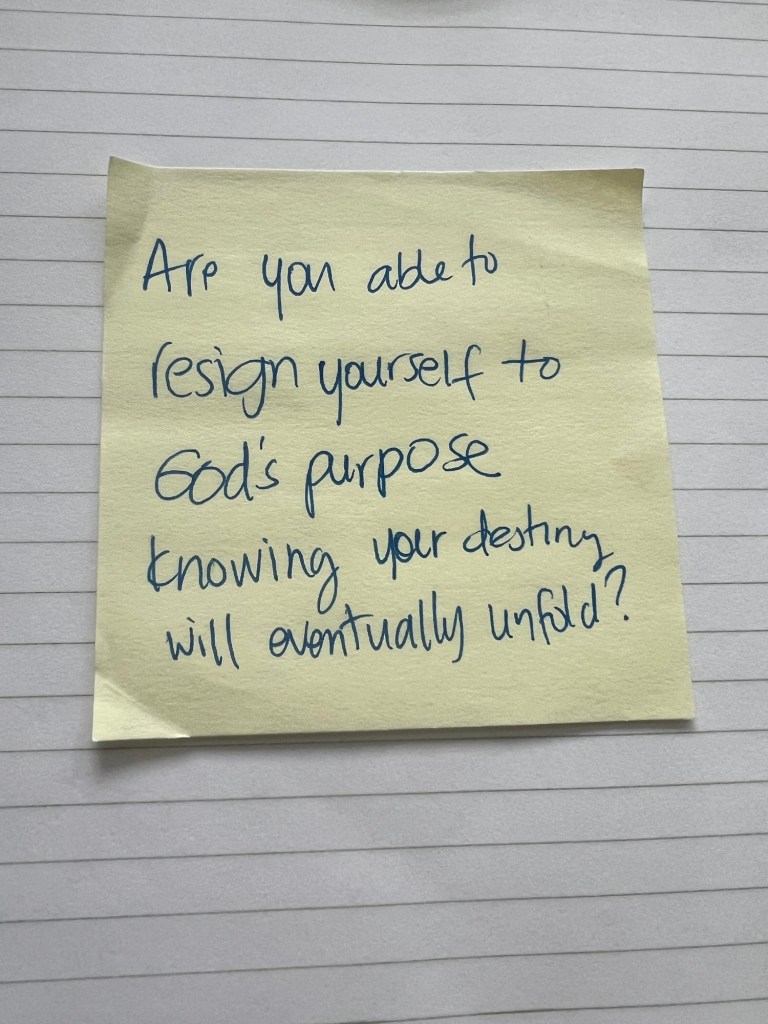 Are you able to
resign yourself to
God's purpose
knowing your destiny
will eventually unfold?